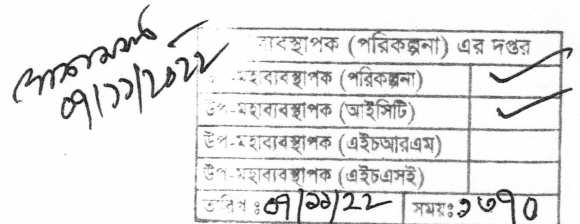 ০৭/১১/২০২২
ব্যবস্থাপক (পরিকল্পনা) এর দপ্তর
উপ-মহাব্যবস্থাপক (পরিকল্পনা)
উপ-মহাব্যবস্থাপক (আইসিটি)
উপ-মহাব্যবস্থাপক (এইচআরএম)
উপ-মহাব্যবস্থাপক (এইচএসই)
তারিখ ঃ ০৭/১১/২২ সময়ঃ